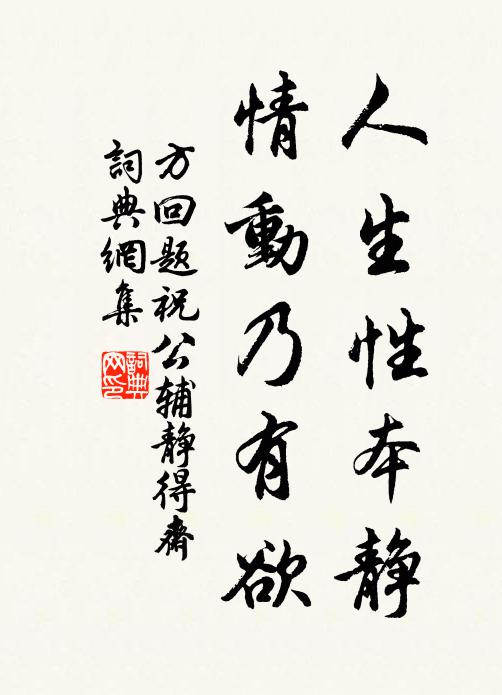 人生性本静
情動乃有欲
方回题祝公辅静得齋
詞典網集
詞典
网印